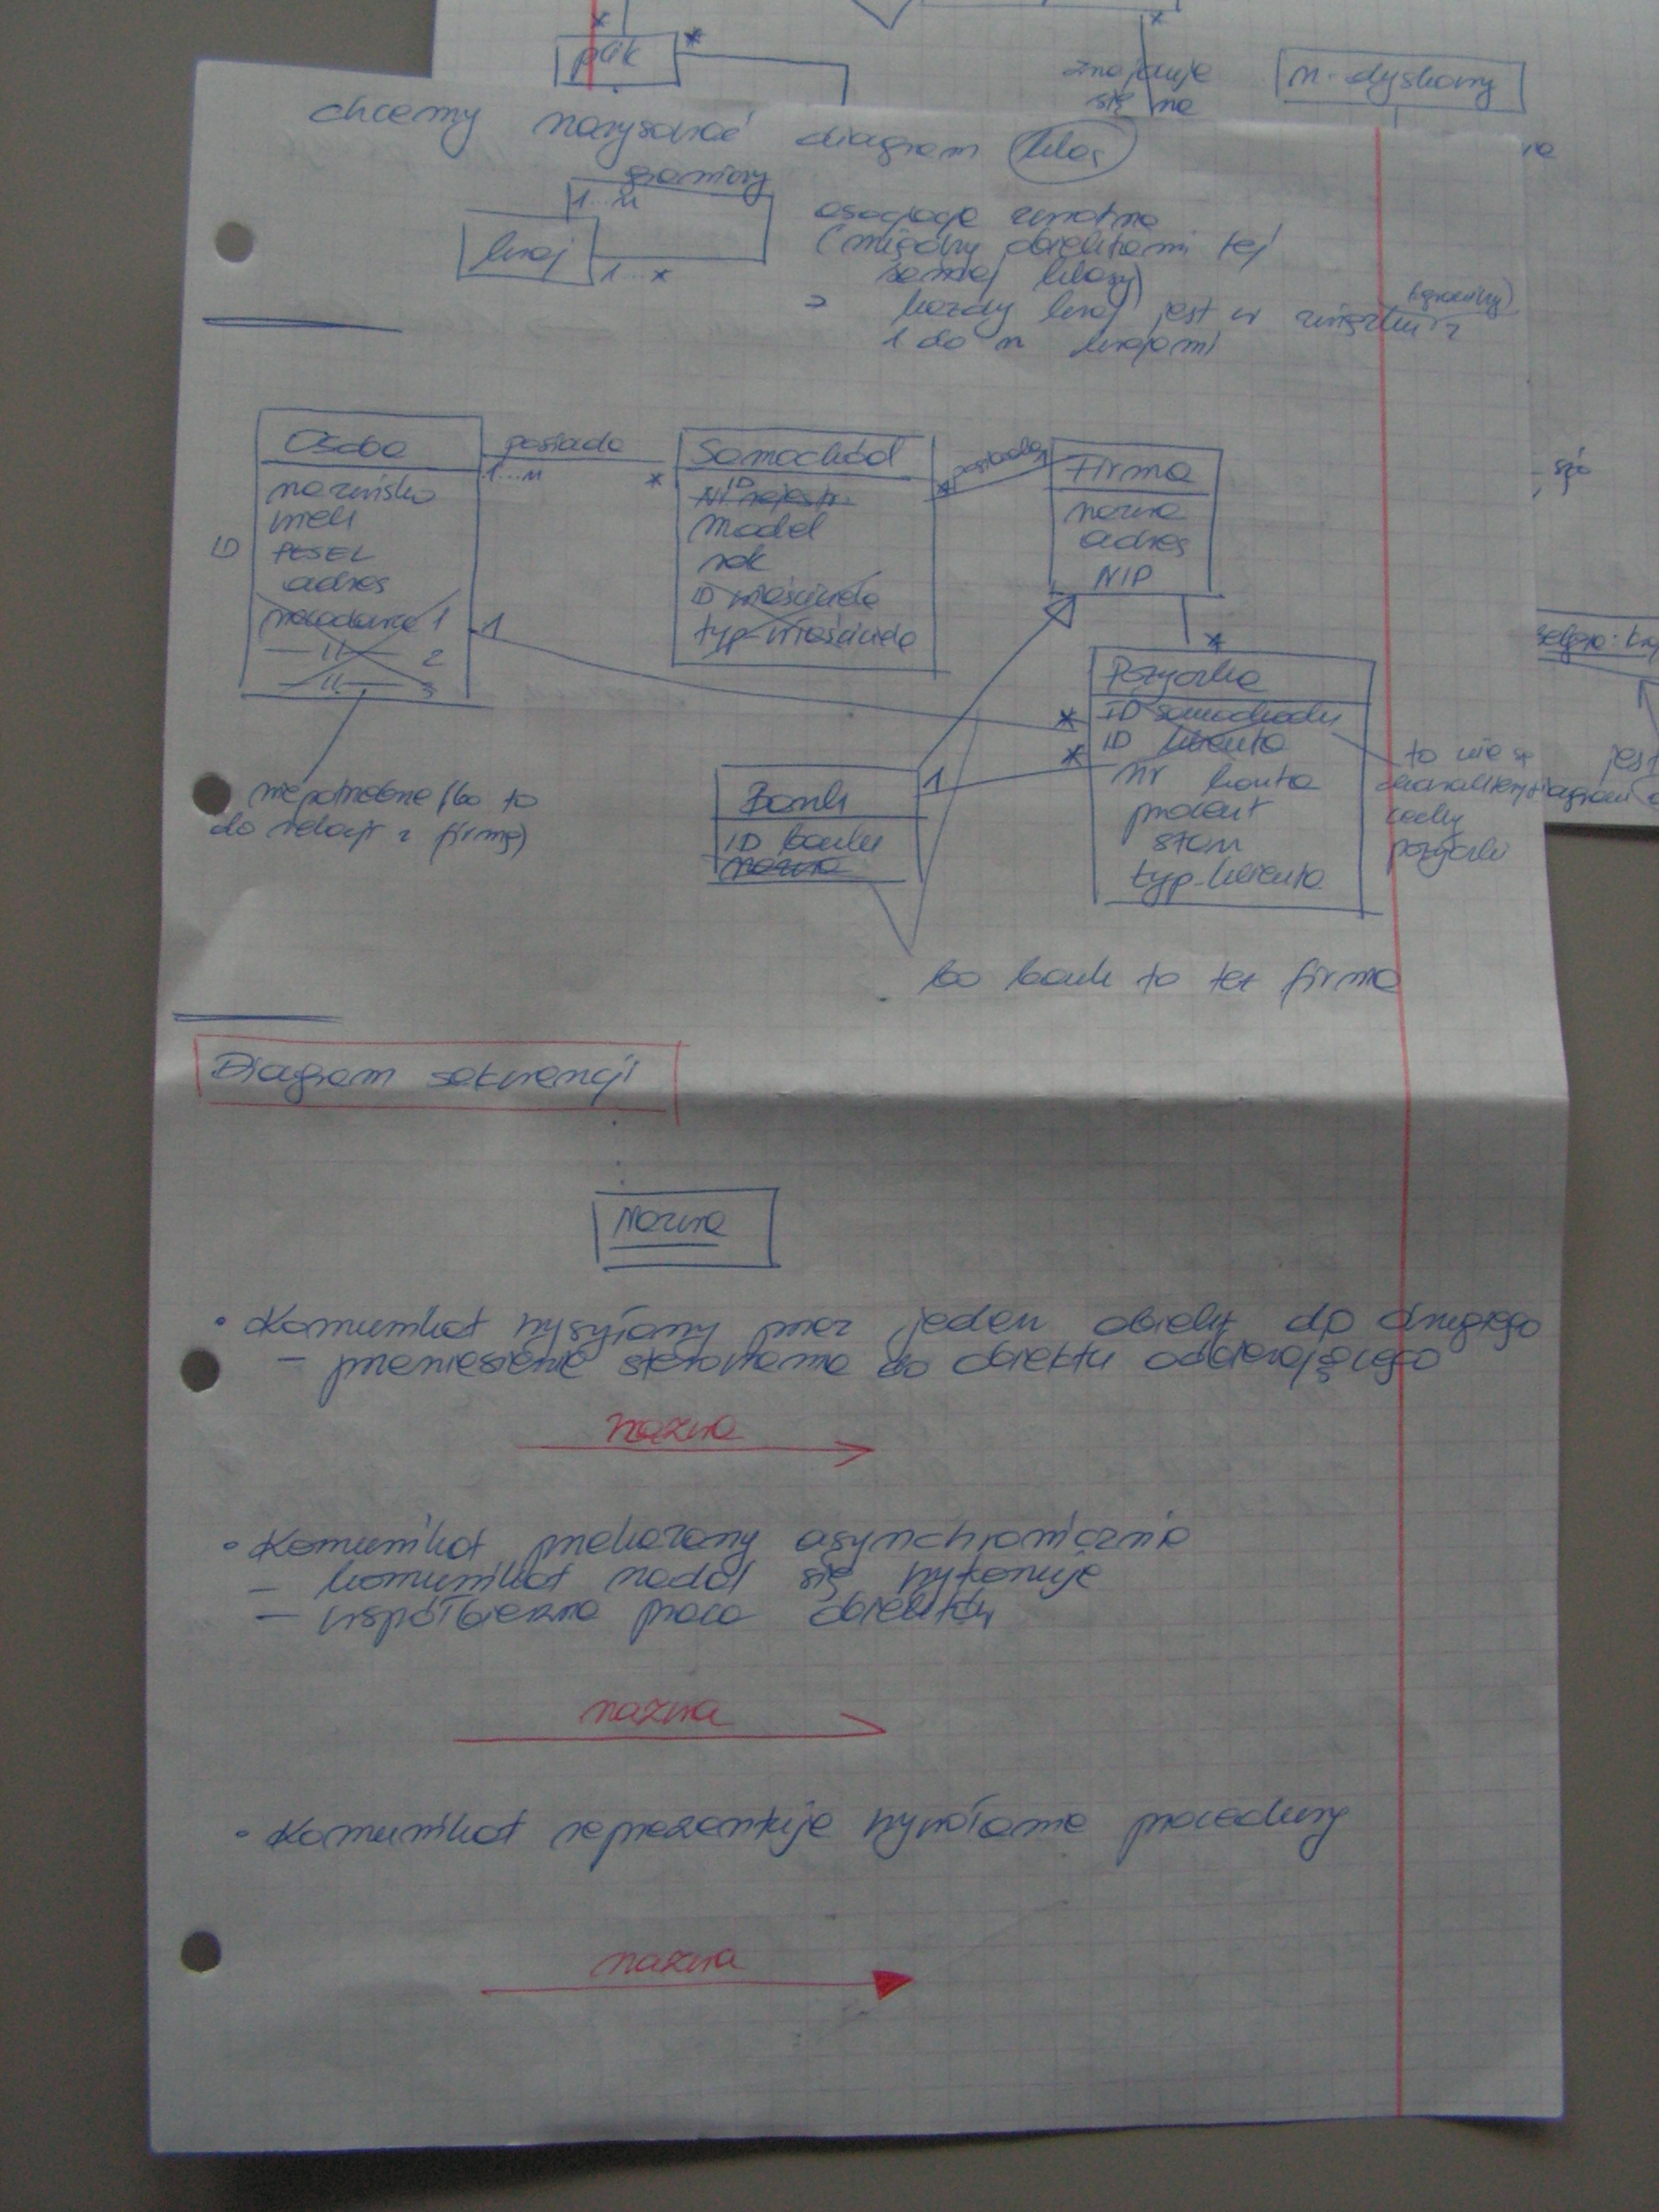 *
plik
*
*
znajduje
się na
m. dyskowy
chcemy narysować diagram klas
graniczy
1..n
kraj
1...*
asocjacja zwrotna
(między obiektami tej
samej klasy)
każdy kraj jest w związku z
(graniczy)
1 do n krajami
Osoba
nazwisko
imię
ID PESEL
adres
1
— 11 — 2
— 11 — 3
posiada
1...n
*
Samochód
ID
Nr rejestr.
model
rok
ID właściciela
typ-właściciela
posiada
*
Firma
nazwa
adres
NIP
*
1
*
Pożyczka
ID samochodu
ID klienta
nr konta
procent
stan
typ-klienta
1
*
Bank
ID banku
nazwa
niepotrzebne (bo to
do relacji z firmą)
to nie są
cechy
pożyczki
bo bank to też firma
Diagram sekwencji
Nazwa
• Komunikat wysyłany przez jeden obiekt do drugiego
– przeniesienie sterowania do obiektu odbierającego
nazwa
• Komunikat przekazany asynchronicznie
– komunikat nadal się wykonuje
– współbieżna praca obiektów
nazwa
• Komunikat reprezentuje wywołanie procedury
nazwa